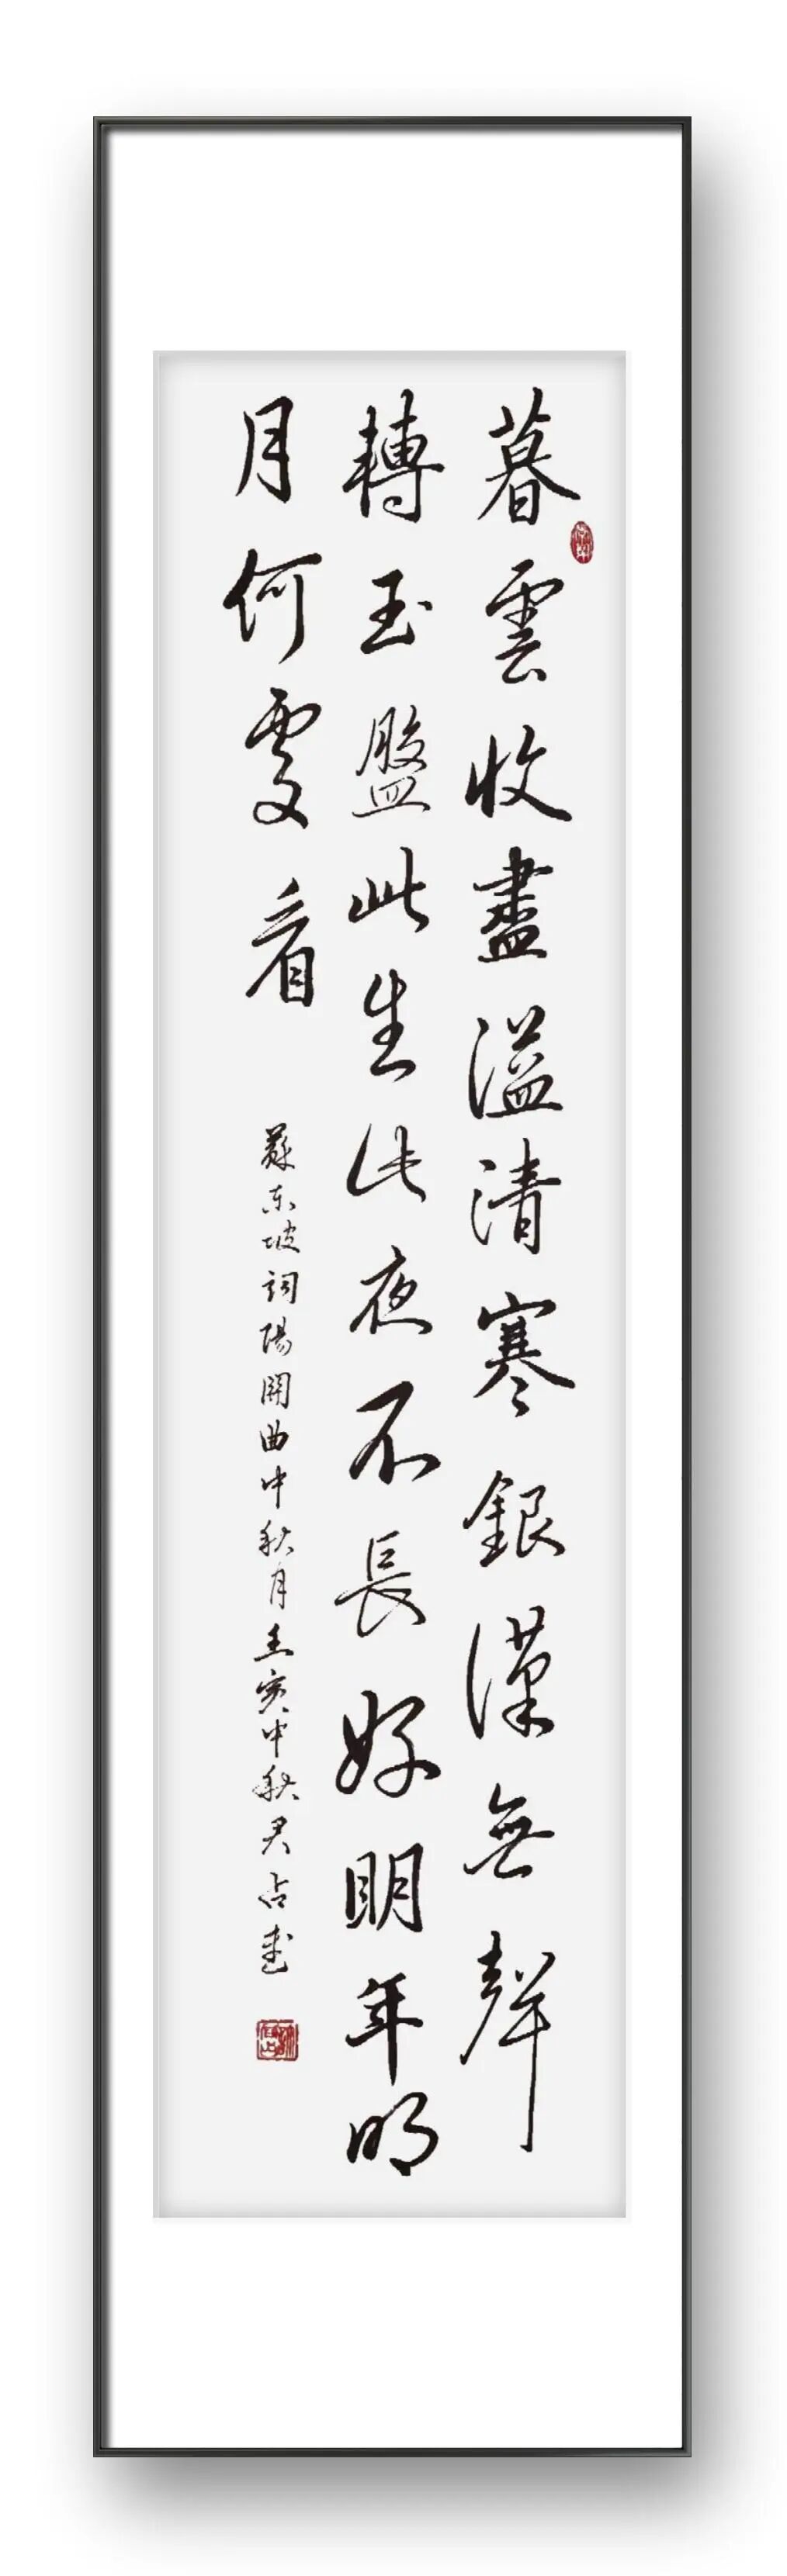 暮雲收盡溢清寒銀漢無聲
轉玉盤此生此夜不長好眀年明
月何處看
蘇东坡詞陽関曲中秋月壬寅中秋君占書